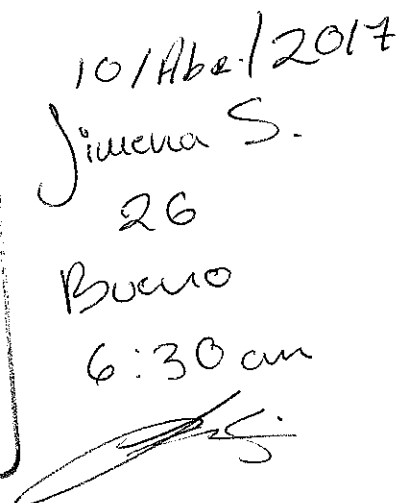 10/Abr/2017
Jimena S.
26
Bueno
6:30 am